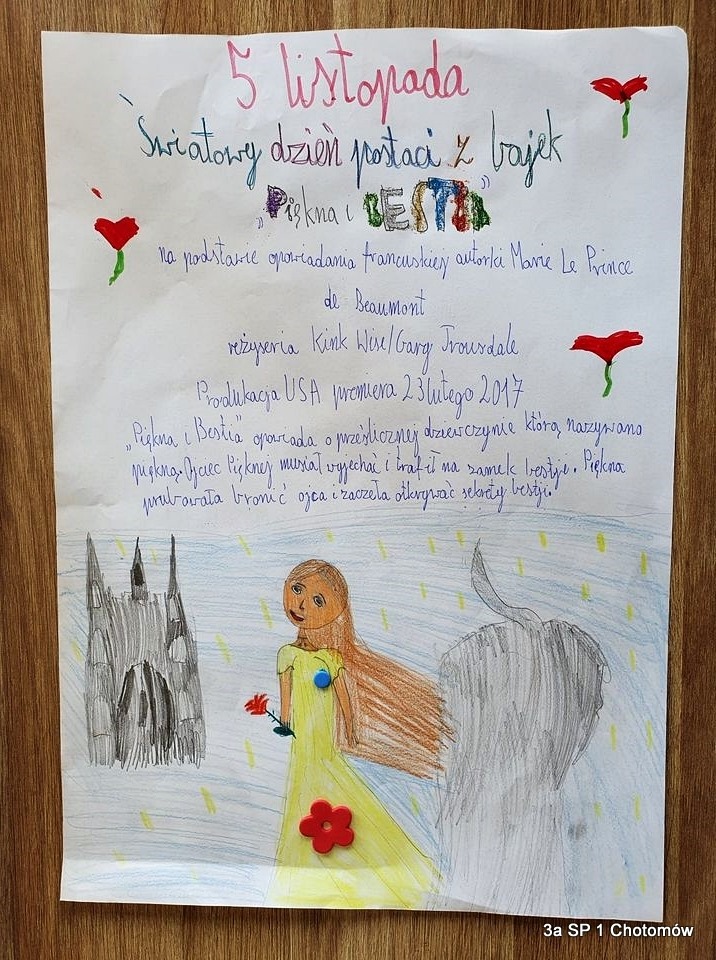 5 listopada
Światowy dzień postaci z bajek
„Piękna i BESTIA”
na podstawie opowiadania francuskiej autorki Marie Le Prince
de Beaumont
reżyseria Kink Wise/Gary Trousdale
Produkacja USA premiera 23 lutego 2017
„Piękna i Bestia” opowiada o prześlicznej dziewczynie którą nazywano
piękną. Ojciec Pięknej musiał wyjechać i trafił na zamek bestje. Piękna
prubawała bronić ojca i zaczęła otkrywać sekrety bestji.
3a SP 1 Chotomów